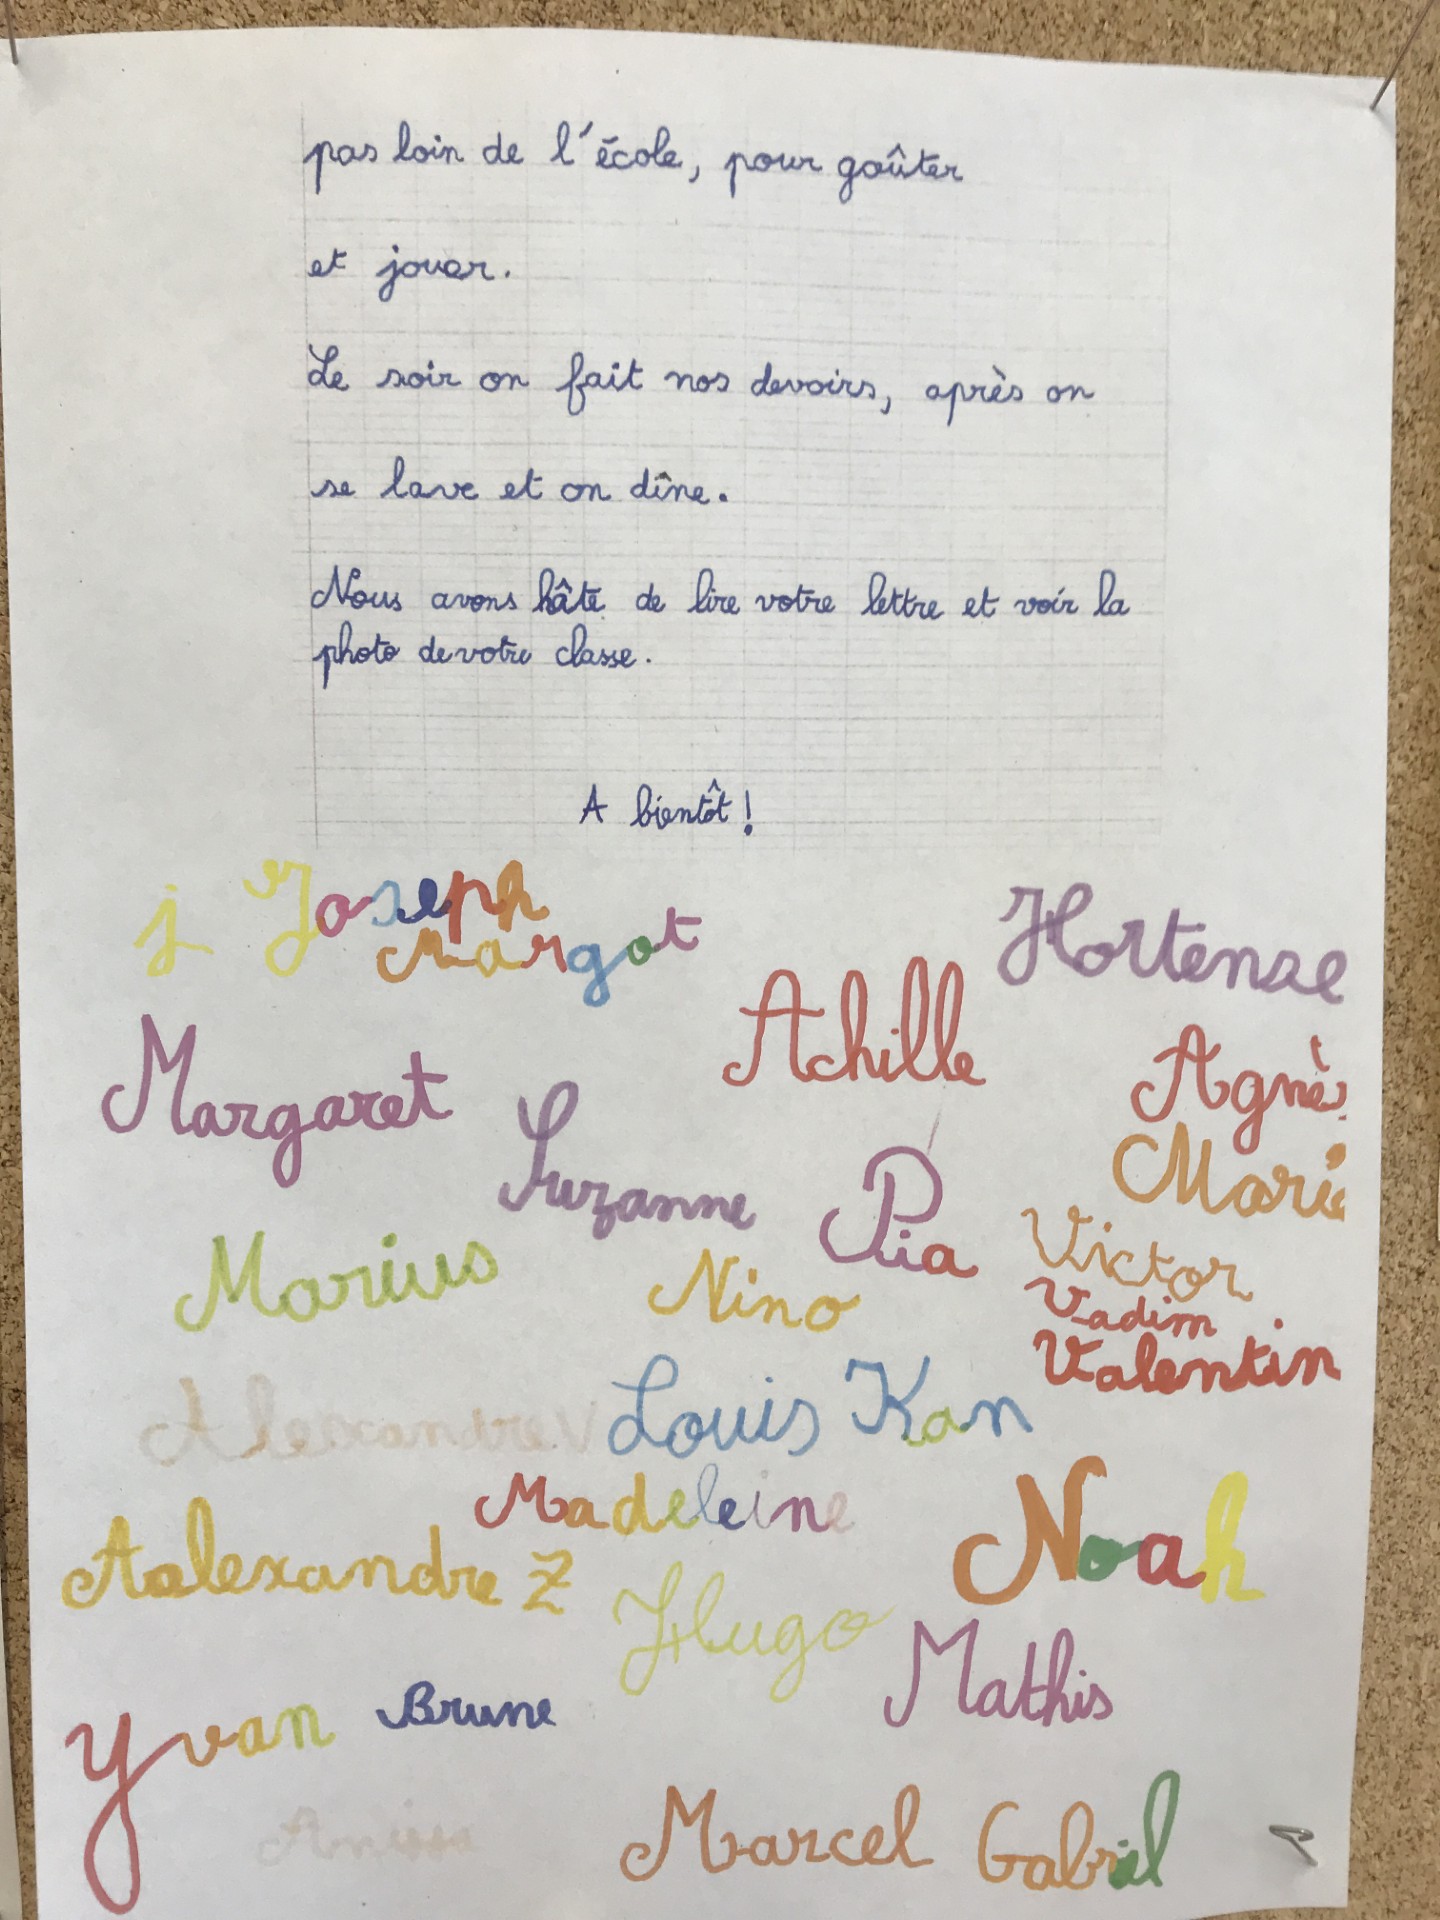 pas loin de l'école, pour goûter
et jouer.
Le soir on fait nos devoirs, après on
se lave et on dîne.
Nous avons hâte de lire votre lettre et voir la
photo de votre classe.
A bientôt !
j Joseph
Margot
Hortense
Achille
Margaret
Agnès
Suzanne
Marie
Pia
Victor
Marius
Nino
Vadim
Valentin
Alexandre V
Louis Kan
Madeleine
Noah
Aalexandre Z
Hugo
Mathis
Yvan
Brune
Marcel
Gabriel